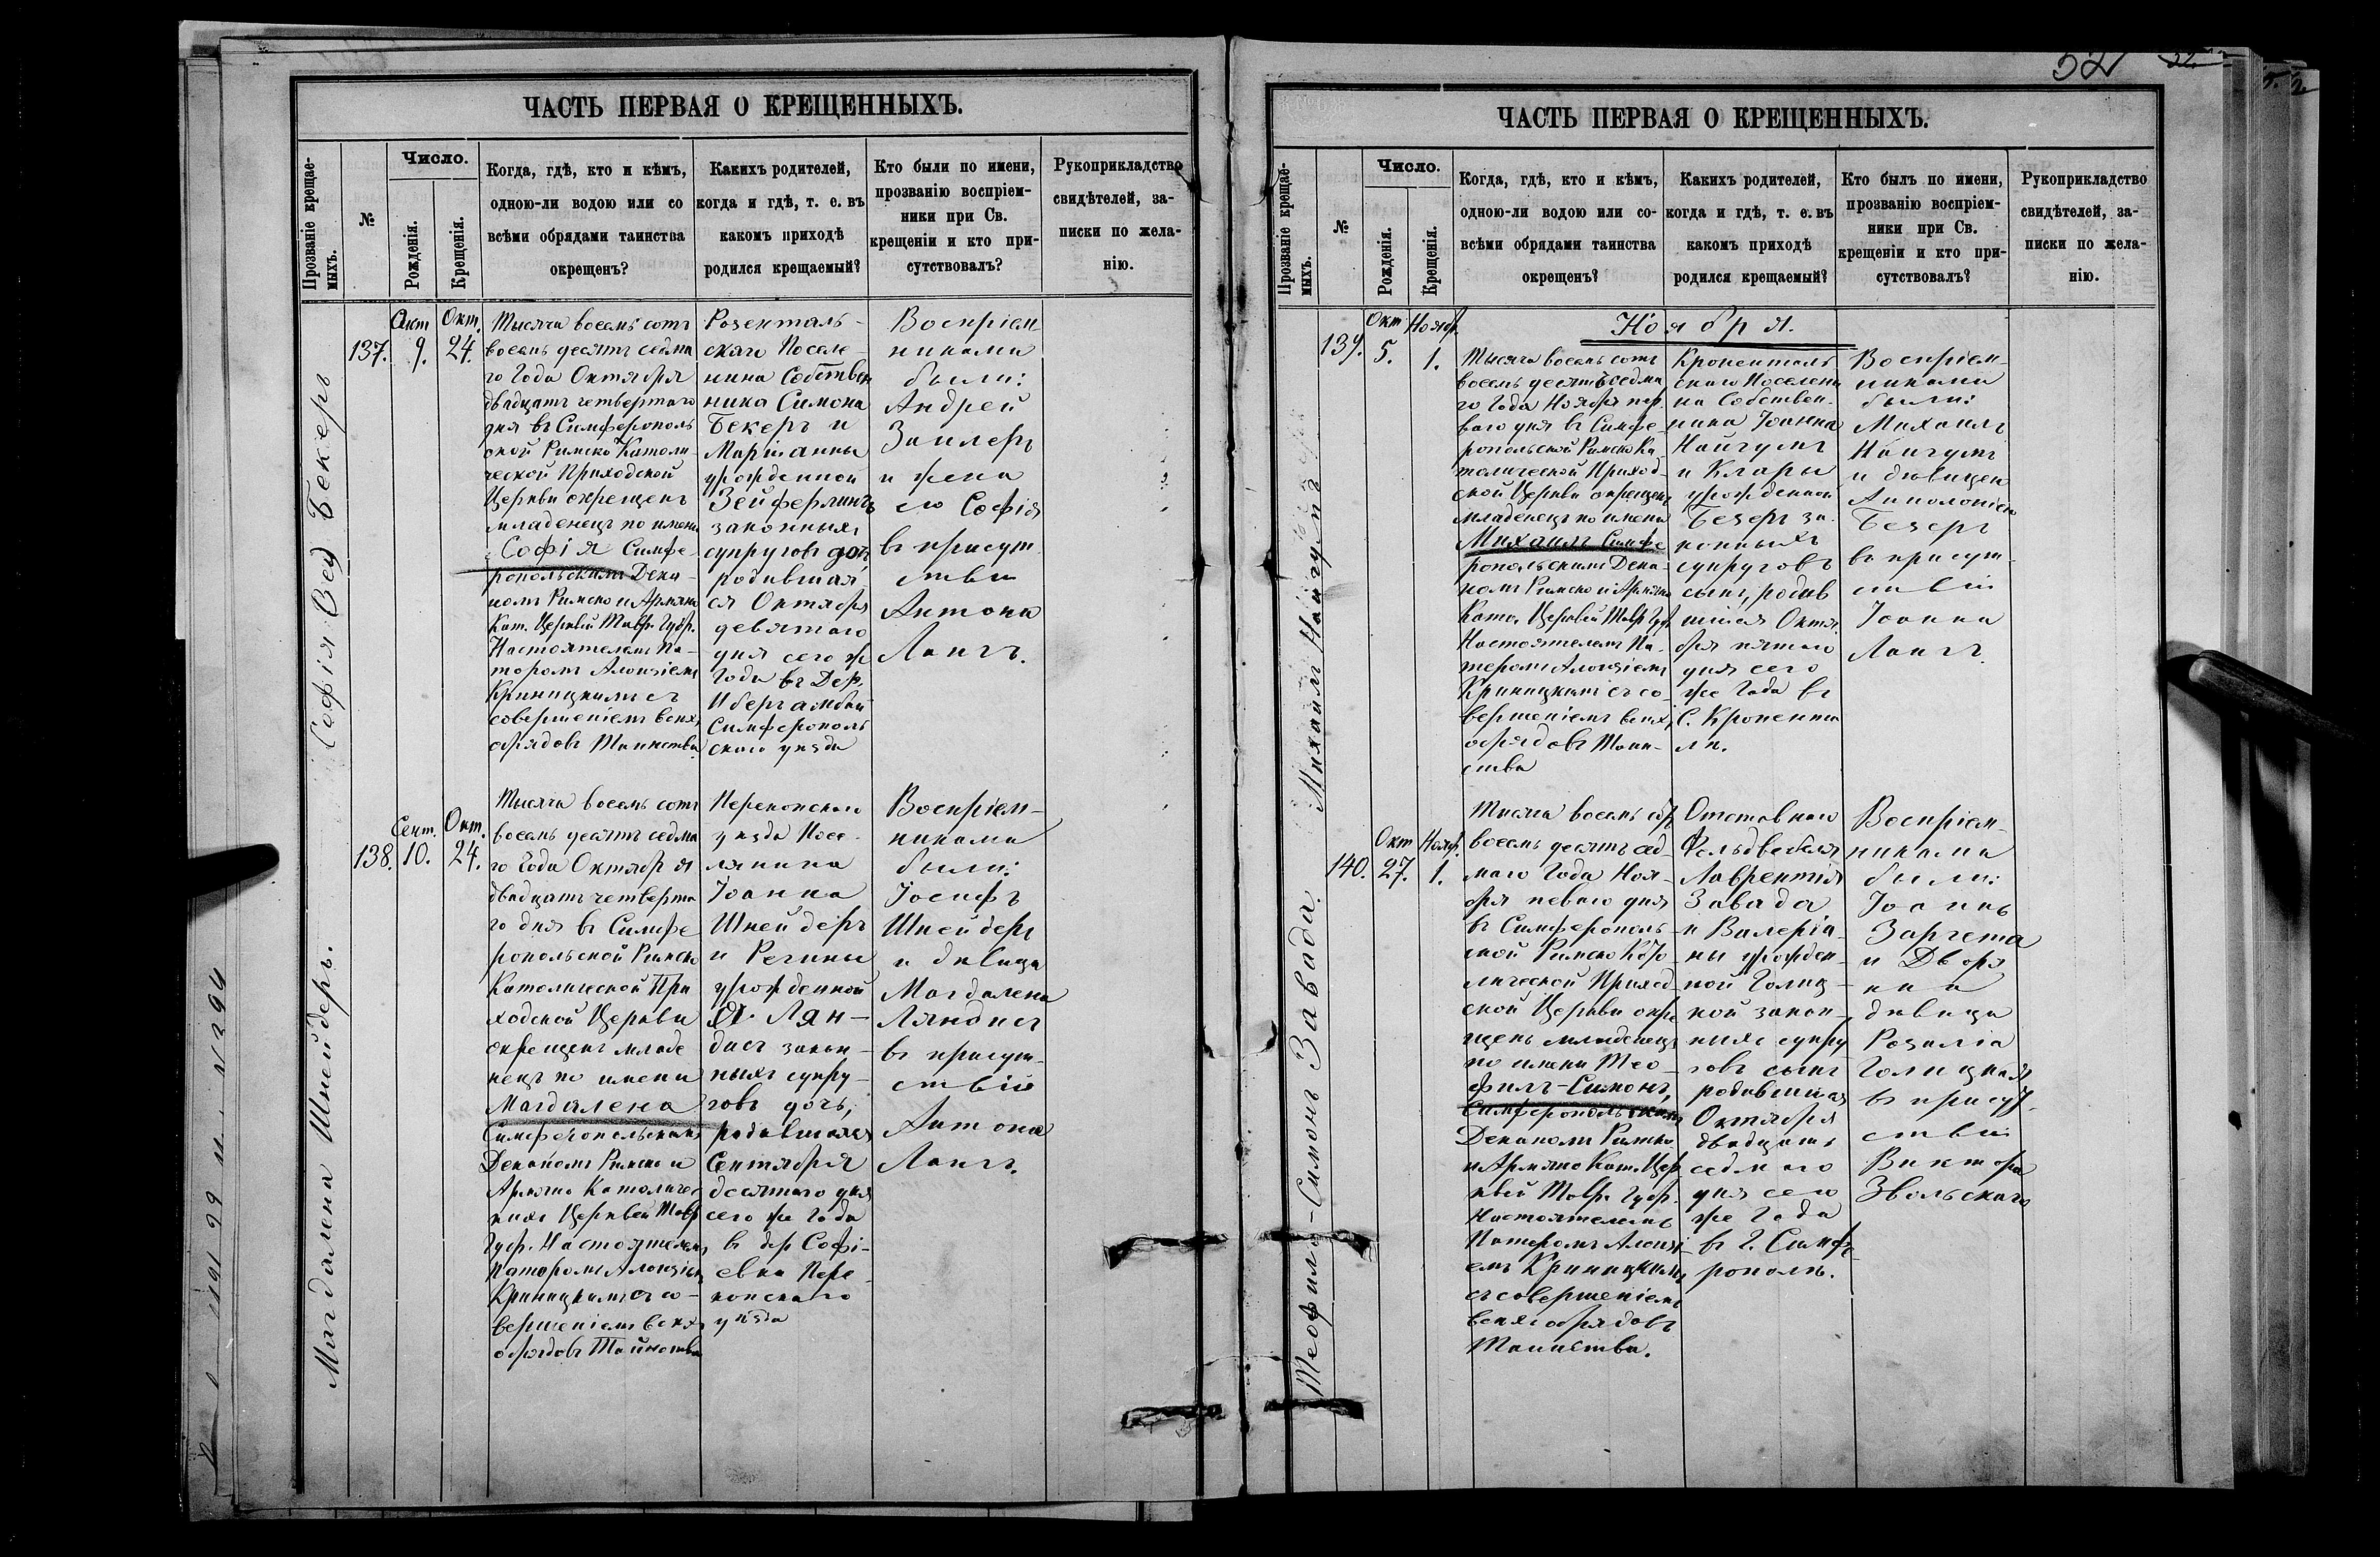 52
ЧАСТЬ ПЕРВАЯ О КРЕЩЕННЫХЪ.
Прозваніе крещае-
мыхъ.
№
Число.
Рожденія.
Крещенія.
Когда, гдѣ, кто и кѣмъ,
одною-ли водою или со
всѣми обрядами таинства
окрещенъ?
Какихъ родителей,
когда и гдѣ, т. е. въ
какомъ приходѣ
родился крещаемый?
Кто были по имени,
прозванію воспріем-
ники при Св.
крещеніи и кто при-
сутствовалъ?
Рукоприкладство
свидѣтелей, за-
писки по жела-
нію.
Софія Бекеръ
137.
Окт.
9.
Окт.
24.
Тысяча восемь сотъ
восемь десятъ седма
го Года Октября
двадцать четвертаго
дня въ Симферополь
ской Римско Католи
ческой Приходской
Церкви окрещенъ
младенецъ по имени
Софія Симфе-
ропольскимъ Дека-
номъ Римско и Армяно
Кат. Церквей Тавр. Губр.
Настоятелемъ Па-
теромъ Алоизіемъ
Криницкимъ съ
совершеніемъ всехъ
обрядовъ Таинства.
Розенталь-
скаго Поселе-
нина Собствен
ника Симона
Бекеръ и
Маріанны
урожденной
Зейферлингъ
законныхъ
супруговъ дочь
родившая
ся Октября
девятаго
дня сего же
Года въ Дер.
Ибергамбай
Симферополь
скаго уѣзда
Воспріем
никами
были:
Андрей
Заилеръ
и жена
его Софія
въ присут
ствіи
Антона
Лангъ.
Магдалена Шнейдеръ.
138.
Сент.
10.
Окт.
24.
Тысяча восемь сотъ
восемь десятъ седма
го Года Октября
двадцать четверта
го дня въ Симфе
ропольской Римско
Католической При
ходской Церкви
окрещенъ младе
нецъ по имени
Магдалена
Симферопольскимъ
Деканомъ Римско и
Армяно Католичес
кихъ Церквей Тавр
Губр. Настоятелемъ
Патеромъ Алоизіемъ
Криницкимъ съ со-
вершеніемъ всехъ
обрядовъ Таинства
Перекопскаго
уѣзда Посе-
лянина
Іоанна
Шнейдеръ
и Регины
урожденной
Лян-
дисъ закон-
ныхъ супру-
говъ дочь,
родившаяся
Сентября
десятаго дня
сего же Года
въ дер Софі-
евка Пере-
копскаго
уѣзда
Воспріем-
никами
были:
Іосифъ
Шнейдеръ
и дѣвица
Магдалена
Ляндисъ
въ присут-
ствіи
Антона
Лангъ.
52
ЧАСТЬ ПЕРВАЯ О КРЕЩЕННЫХЪ.
Прозваніе крещае-
мыхъ.
№
Число.
Рожденія.
Крещенія.
Когда, гдѣ, кто и кѣмъ,
одною-ли водою или со-
всѣми обрядами таинства
окрещенъ?
Какихъ родителей,
когда и гдѣ, т. е. въ
какомъ приходѣ
родился крещаемый?
Кто былъ по имени,
прозванію воспріем-
ники при Св.
крещеніи и кто при-
сутствовалъ?
Рукоприкладство
свидѣтелей, за-
писки по жела-
нію.
Ноября.
Михаилъ
139.
Окт
5.
Нояб.
1.
Тысяча восемь сотъ
восемь десятъ седма
го Года Ноября пер
ваго дня въ Симфе
ропольской Римско Ка
толической Приход
ской Церкви окрещенъ
младенецъ по имени
Михаилъ Симфе
ропольскимъ Дека-
номъ Римско и Армяно
Като. Церквей Тавр Губ
Настоятелемъ Па-
теромъ Алоизіемъ
Криницкимъ съ со-
вершеніемъ всехъ
обрядовъ Таин-
ства
Кроненталь
скаго Поселени
на Собствен-
ника Іоанна
Нангумъ
и Клары
урожденной
Безеръ за-
конныхъ
супруговъ
сынъ, родив
шійся Октя
бря пятаго
дня сего
же Года въ
С. Кронента
лѣ.
Воспріем-
никами
были:
Михаилъ
Нангумъ
и дѣвицею
Аполоніею
Безеръ
въ присут-
ствіи
Іоанна
Лангъ.
Теофилъ-Симонъ Завада.
140.
Окт
27.
Нояб.
1.
Тысяча восемь сотъ
восемь десятъ сед-
маго Года Ноя-
бря перваго дня
въ Симферополь-
ской Римско Като
лической Приход
ской Церкви окре
щенъ младенецъ
по имени Тео-
филъ-Симонъ,
Симферопольскимъ
Деканомъ Римско
и Армяно Кат. Цер
квей Тавр. Губр.
Настоятелемъ
Патеромъ Алоизі-
емъ Криницкимъ
съ совершеніемъ
всехъ обрядовъ
Таинства.
Отставнаго
Фельдвебеля
Лаврентія
Завада
и Валеріа-
ны урожден-
ной Голиц-
кой закон-
ныхъ супру
говъ сынъ
родившійся
Октября
двадцать
седмаго
дня сего
же Года
въ Г. Симфе
рополѣ.
Воспріем-
никами
были:
Іоаннъ
Заргета
и Дворя
нка
дѣвица
Розалія
Голицкая
въ присут-
ствіи
Виктора
Звольскаго